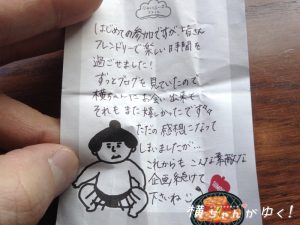 はじめての参加ですが、皆さん
フレンドリーで楽しい時間を
過ごせました!
ずっとブログを見ていたので
横ちゃんにお会い出来て
それもまた嬉しかったです
ただの感想になって
しまいましたが…
これからもこんな素敵な
企画続けて
下さいね
横ちゃんがゆく!